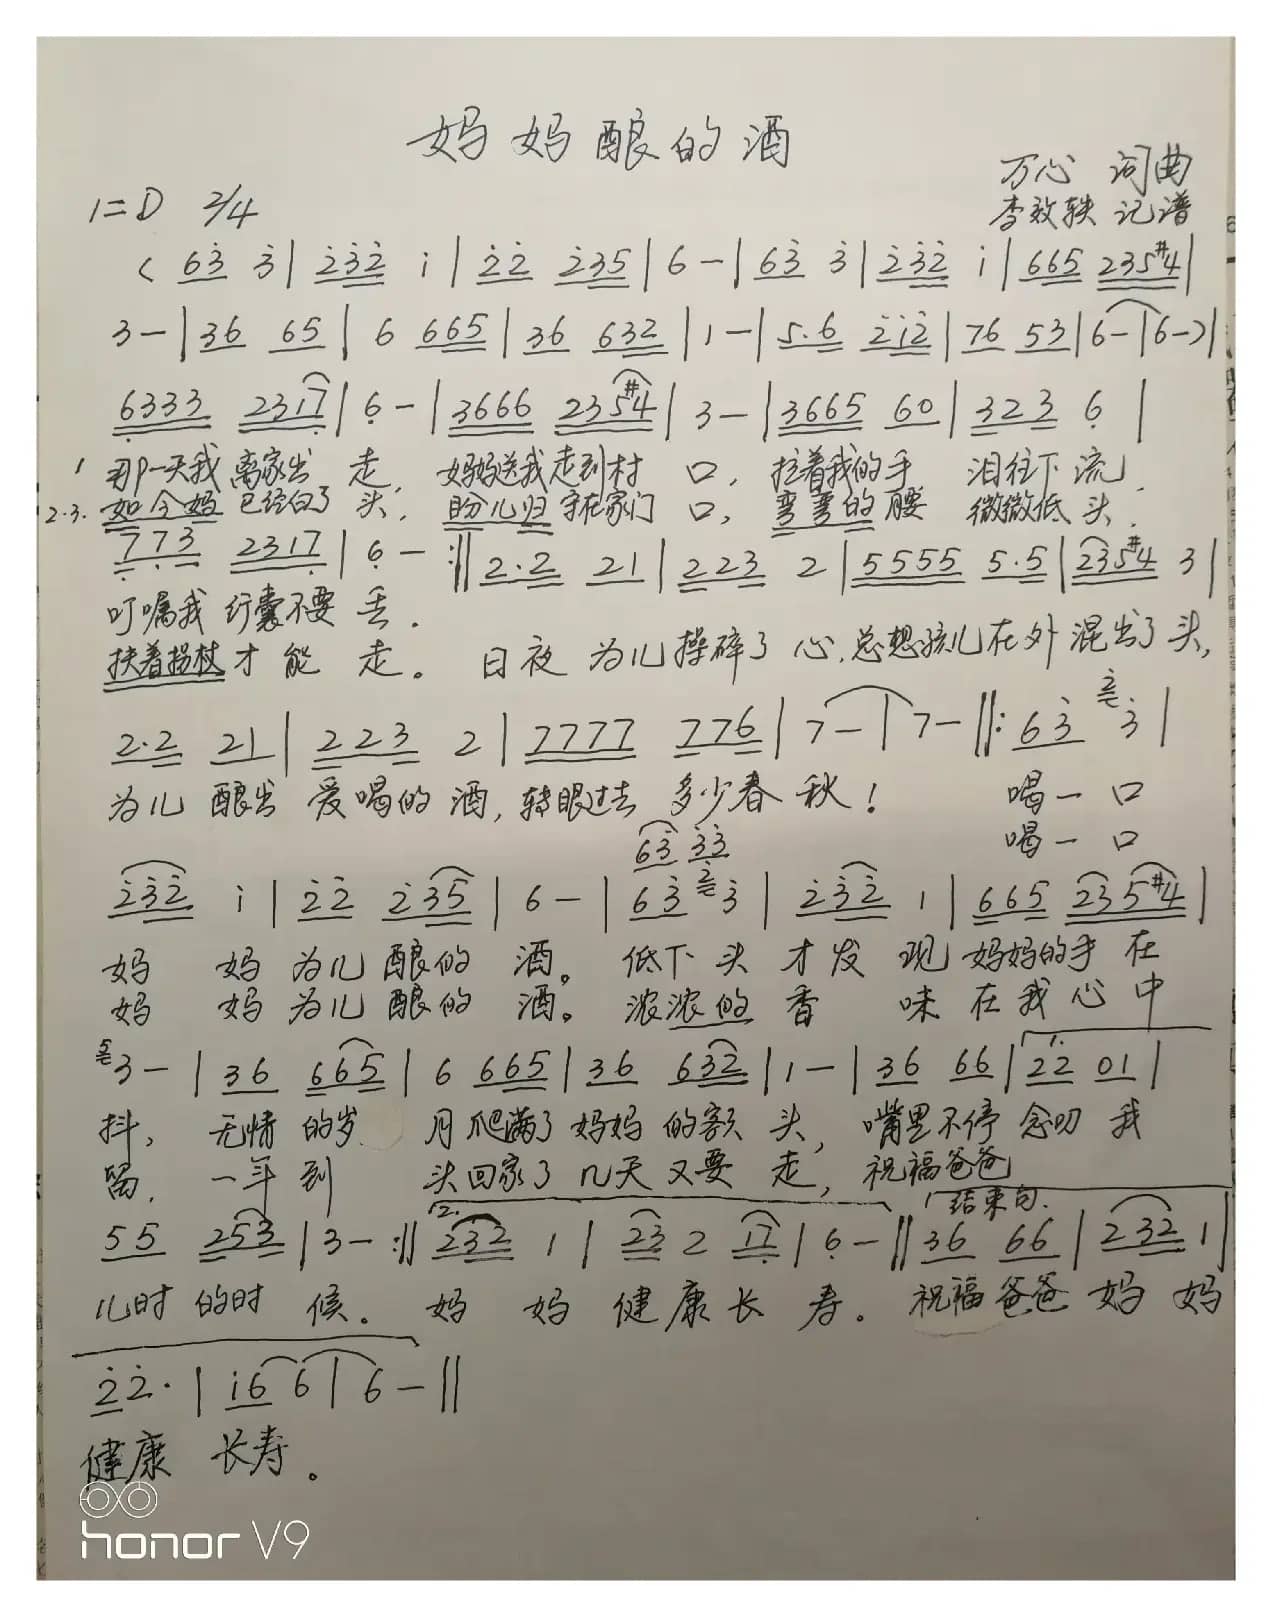 妈妈酿的酒
万心 词曲
1=D 2/4
李效轶 记谱
( 63 3 | 232 i | 22 235 | 6 - | 63 3 | 232 i | 665 235#4 |
3 - | 36 65 | 6 665 | 36 632 | 1 - | 5.6 212 | 76 53 | 6 - | 6 - ) |
6333 2317 | 6 - | 3666 235#4 | 3 - | 3665 60 | 323 6 |
1 那一天我离家出 走, 妈妈送我走到村 口, 拉着我的手 泪往下流,
2.3. 如今妈已经白了 头, 盼儿归守在家门 口, 弯弯的腰 微微低头,
773 2317 | 6 - :|| 2.2 21 | 223 2 | 5555 5.5 | 235#4 3 |
叮嘱我行囊不要 丢.
扶着拐杖才能 走。 日夜为儿操碎了 心,总想孩儿在外混出了头,
2.2 21 | 223 2 | 7777 776 | 7 - | 7 - ||: 63 2 3 |
为儿 酿出 爱喝的 酒, 转眼过去 多少春 秋! 喝一 口
喝一 口
63 33
232 i | 22 235 | 6 - | 63 2 3 | 232 1 | 665 235#4 |
妈 妈 为儿 酿的 酒。 低下 头 才发 现 妈妈的手 在
妈 妈 为儿 酿的 酒。 浓浓的 香 味 在我心中
5 3 - | 36 665 | 6 665 | 36 632 | 1 - | 36 66 | 1. 22 01 |
抖, 无情 的岁 月爬满了 妈妈 的额 头, 嘴里不停 念叨 我
留, 一年 到 头回家了 几天又要 走, 祝福爸爸
结束句.
55 253 | 3 - :|| 2. 232 1 | 23 2 17 | 6 - || 36 66 | 232 1 |
儿时 的时 候。 妈 妈 健康长 寿。 祝福爸爸 妈 妈
22. | i6 6 | 6 - ||
健康 长寿。
honor V9